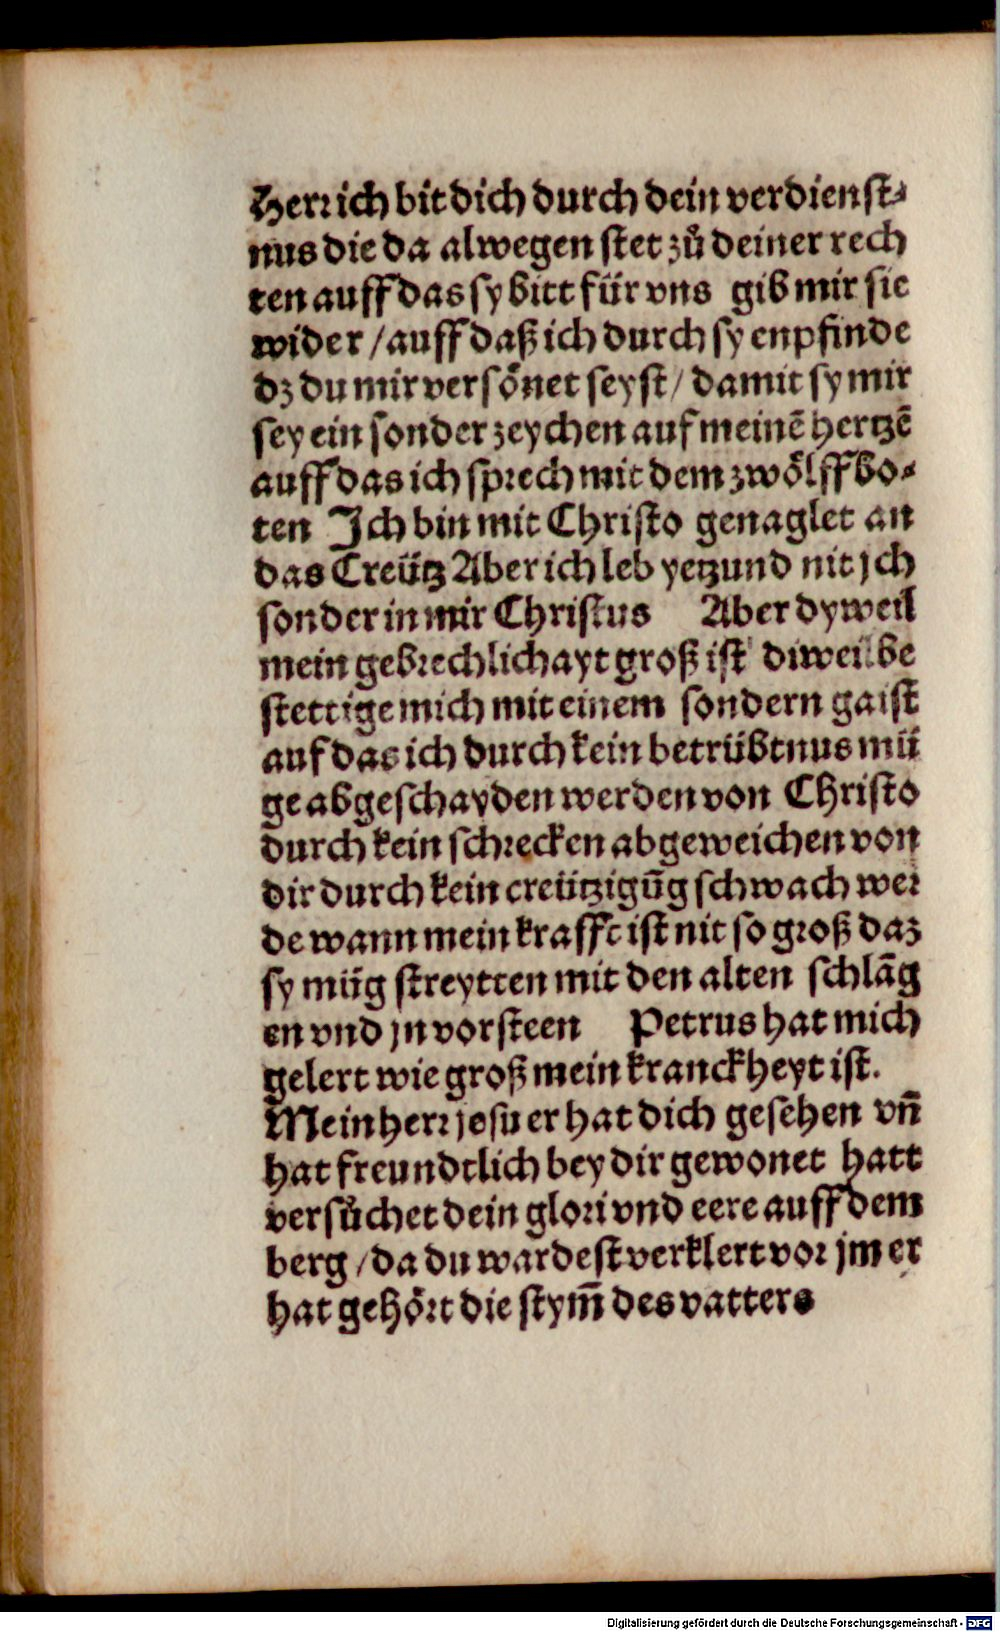 Herr ich bit dich durch dein verdienst⸗
nus die da alwegen stet zů deiner rech
ten auff das sy bitt für vns gib mir sie
wider / auff daß ich durch sy enpfinde
dz du mir versönet seyst / damit sy mir
sey ein sonder zeychen auf meinē hertzē
auff das ich sprech mit dem zwölffbo⸗
ten Ich bin mit Christo genaglet an
das Creütz Aber ich leb yetzund nit jch
sonder in mir Christus Aber dyweil
mein gebrechlichayt groß ist diweil be
stettige mich mit einem sondern gaist
auf das ich durch kein betrübtnus mü
ge abgeschayden werden von Christo
durch kein schrecken abgeweichen von
dir durch kein creützigūg schwach wer
de wann mein krafft ist nit so groß daz
sy müg streytten mit den alten schlāg
en vnd jn vorsteen Petrus hat mich
gelert wie groß mein kranckheyt ist.
Mein herr jesu er hat dich gesehen vñ
hat freundtlich bey dir gewonet hatt
versůchet dein glori vnd eere auff dem
berg / da du wardest verklert vor jm er
hat gehört die stym̄ des vatters
Digitalisierung gefördert durch die Deutsche Forschungsgemeinschaft - DFG